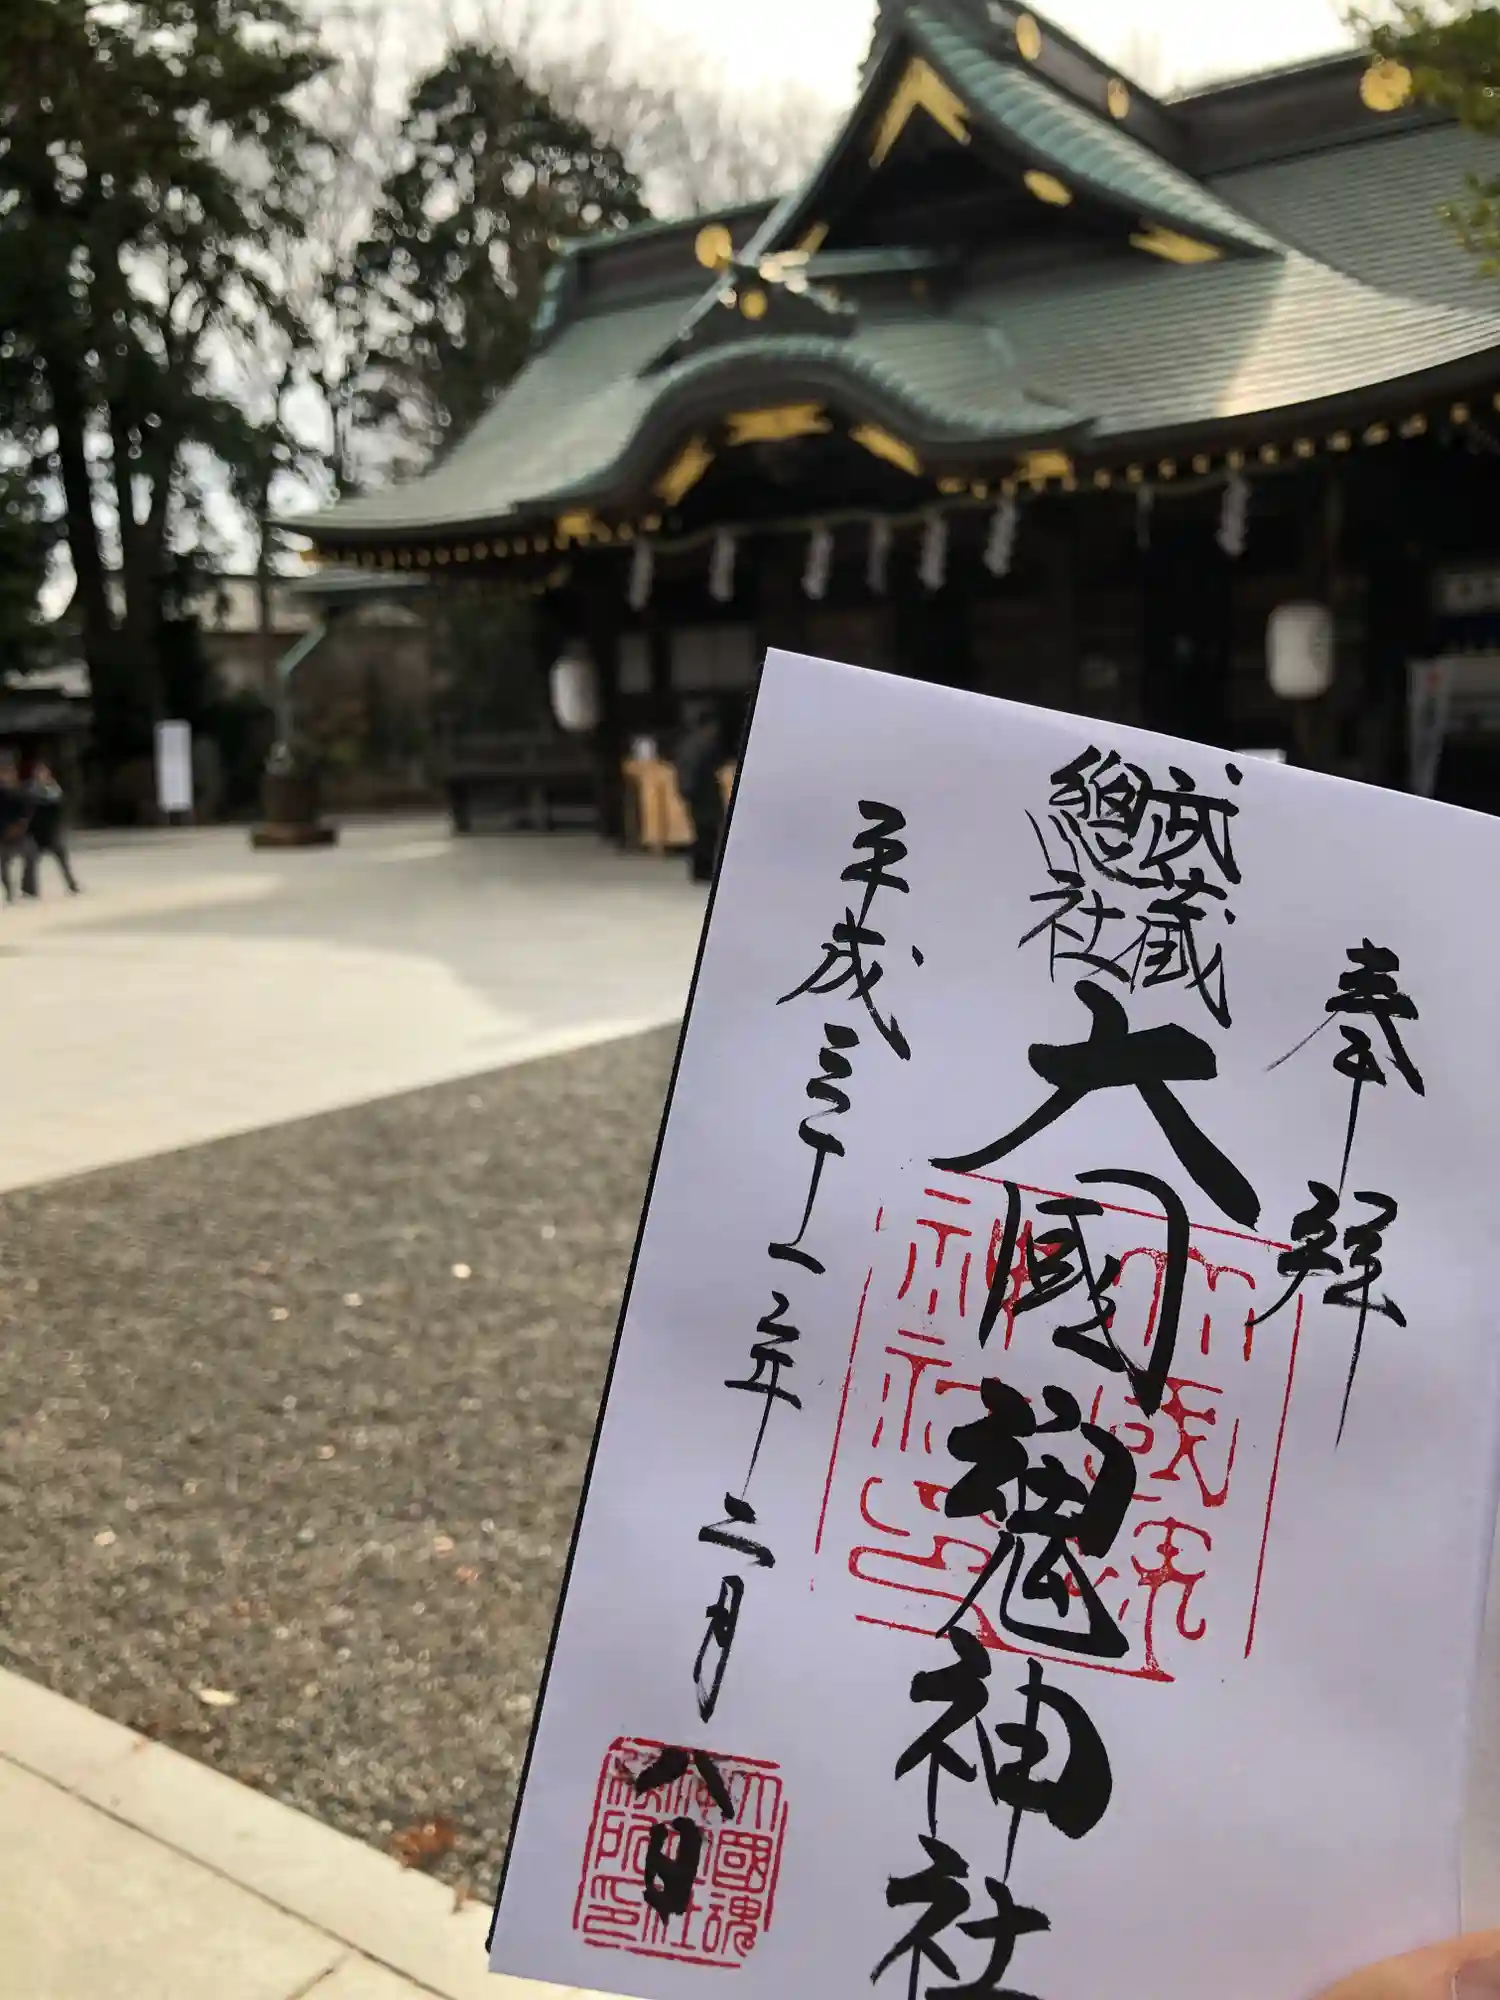 奉拝
武蔵
總社
大國魂神社
平成三十一年二月八日
大國魂
神社